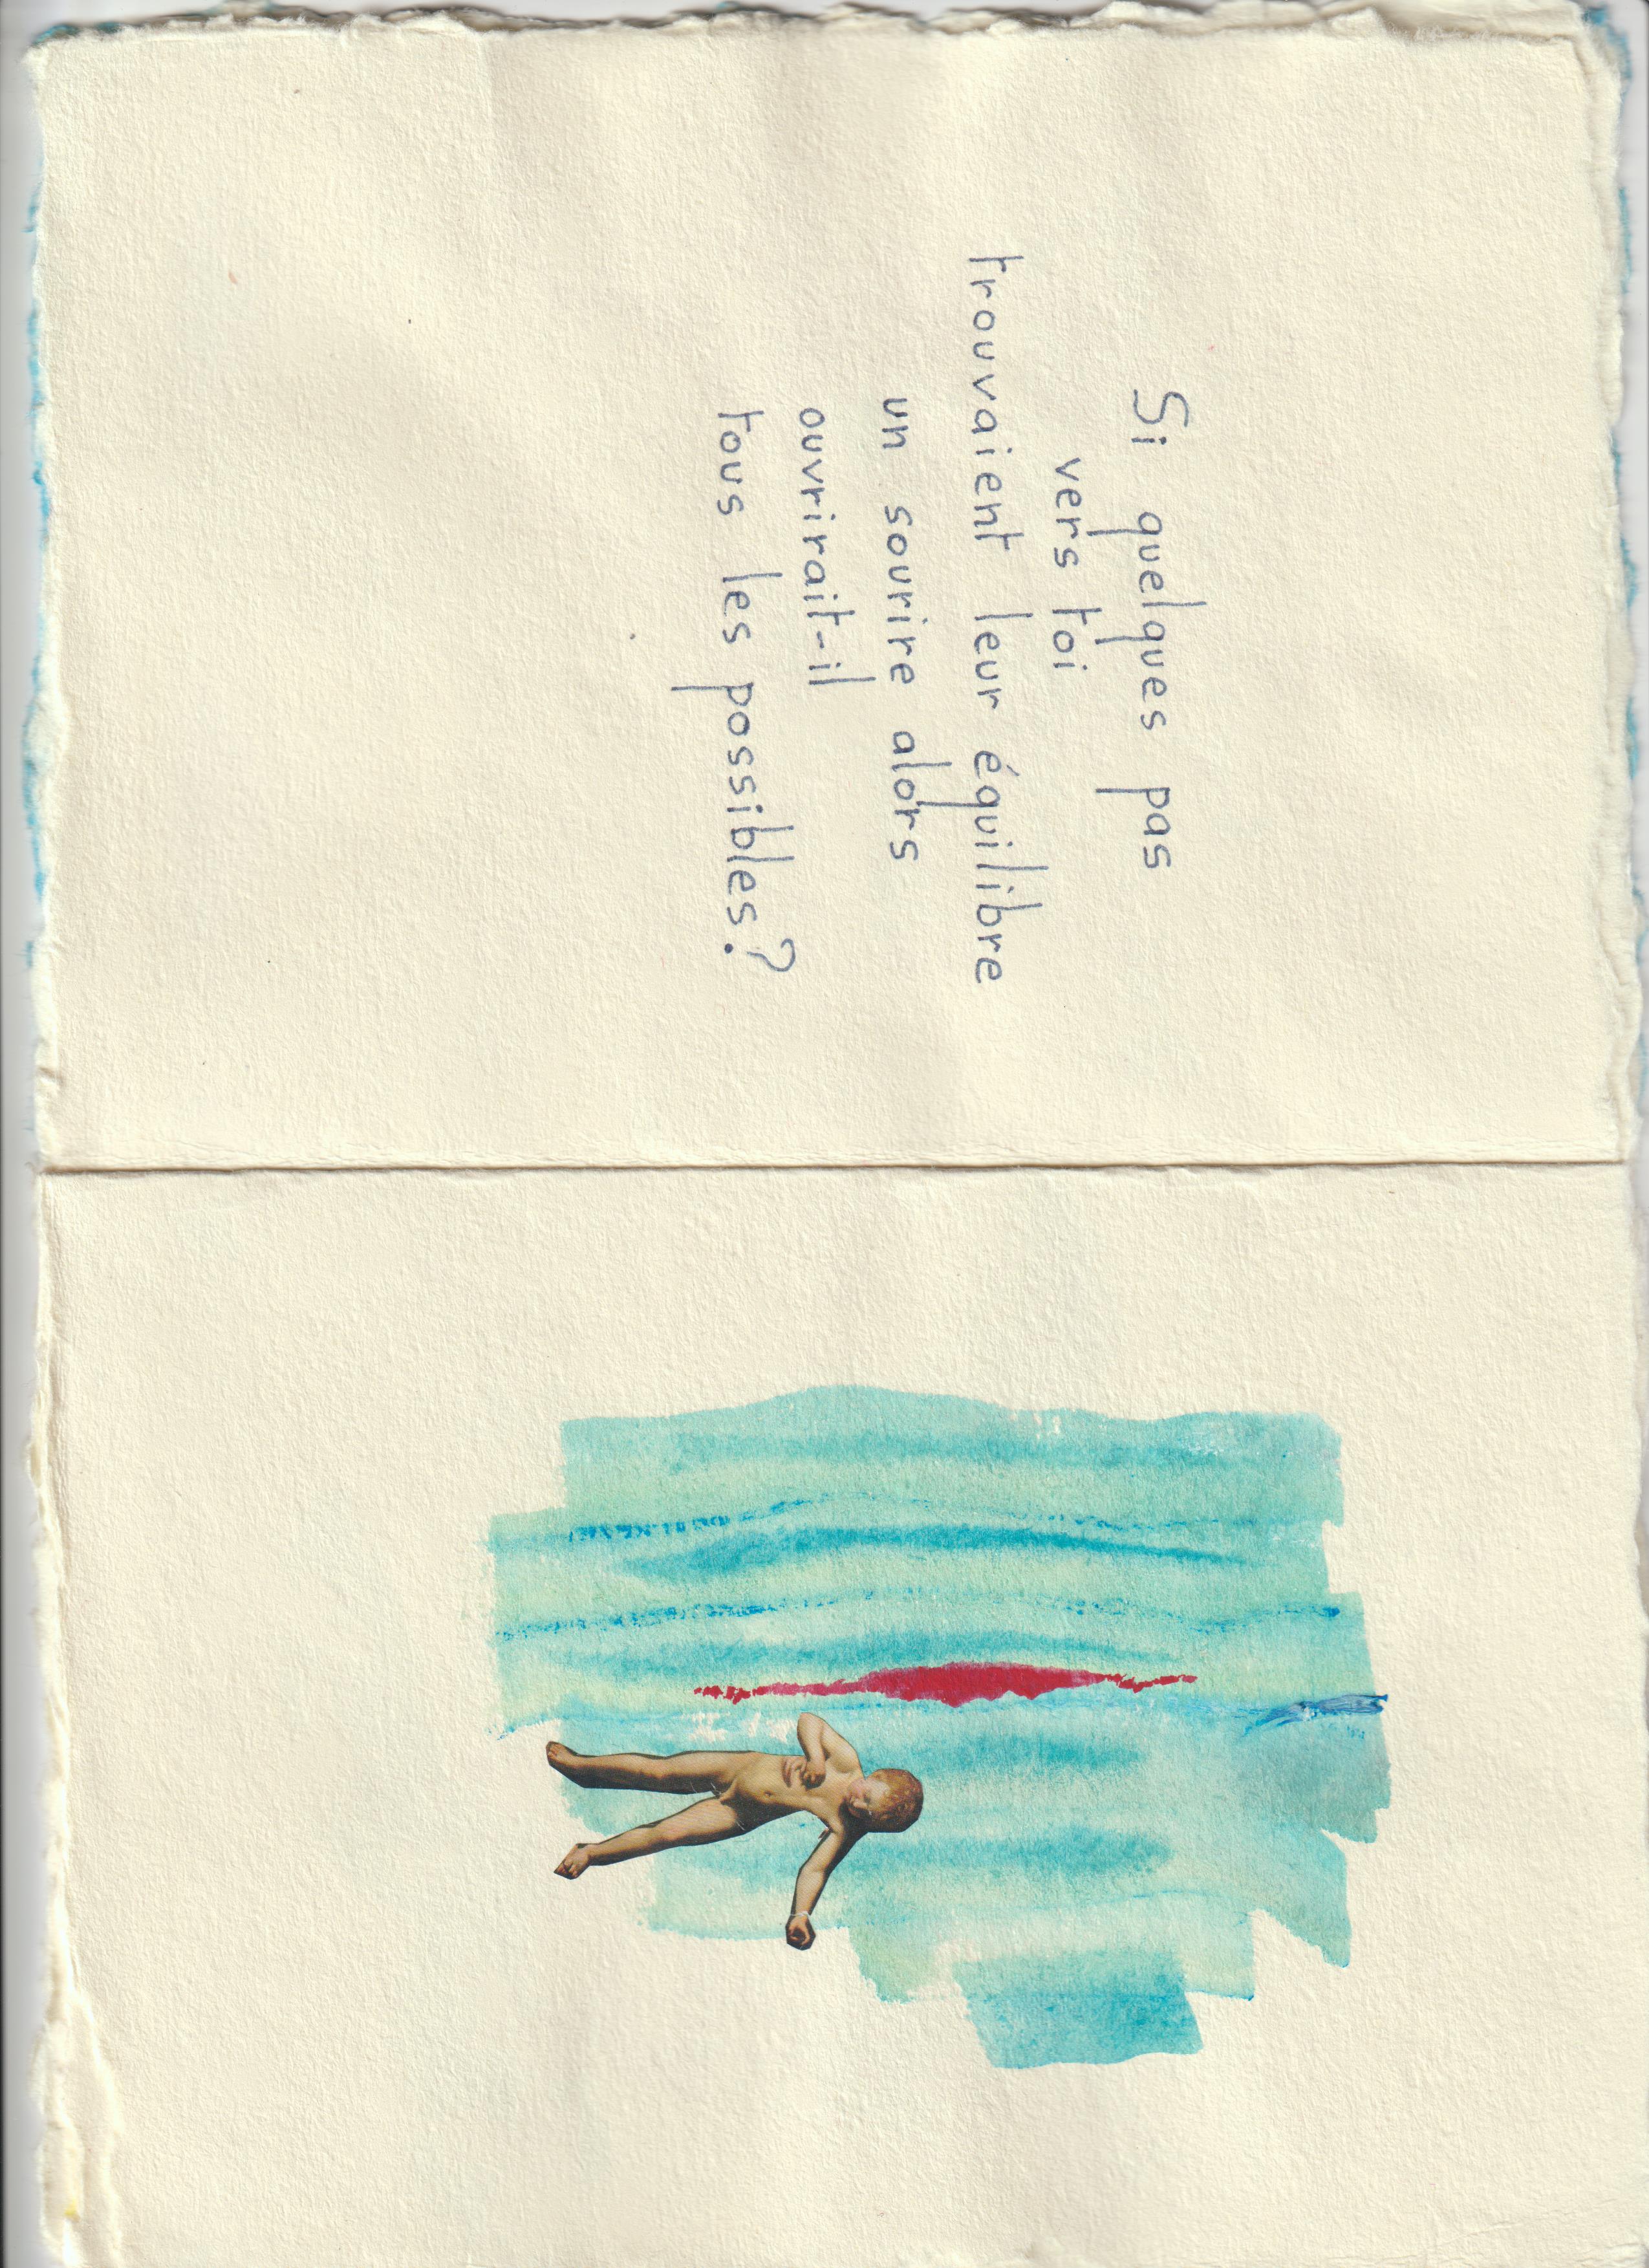 Si quelques pas
vers toi
trouvaient leur équilibre
un sourire alors
ouvrirait-il
tous les possibles?